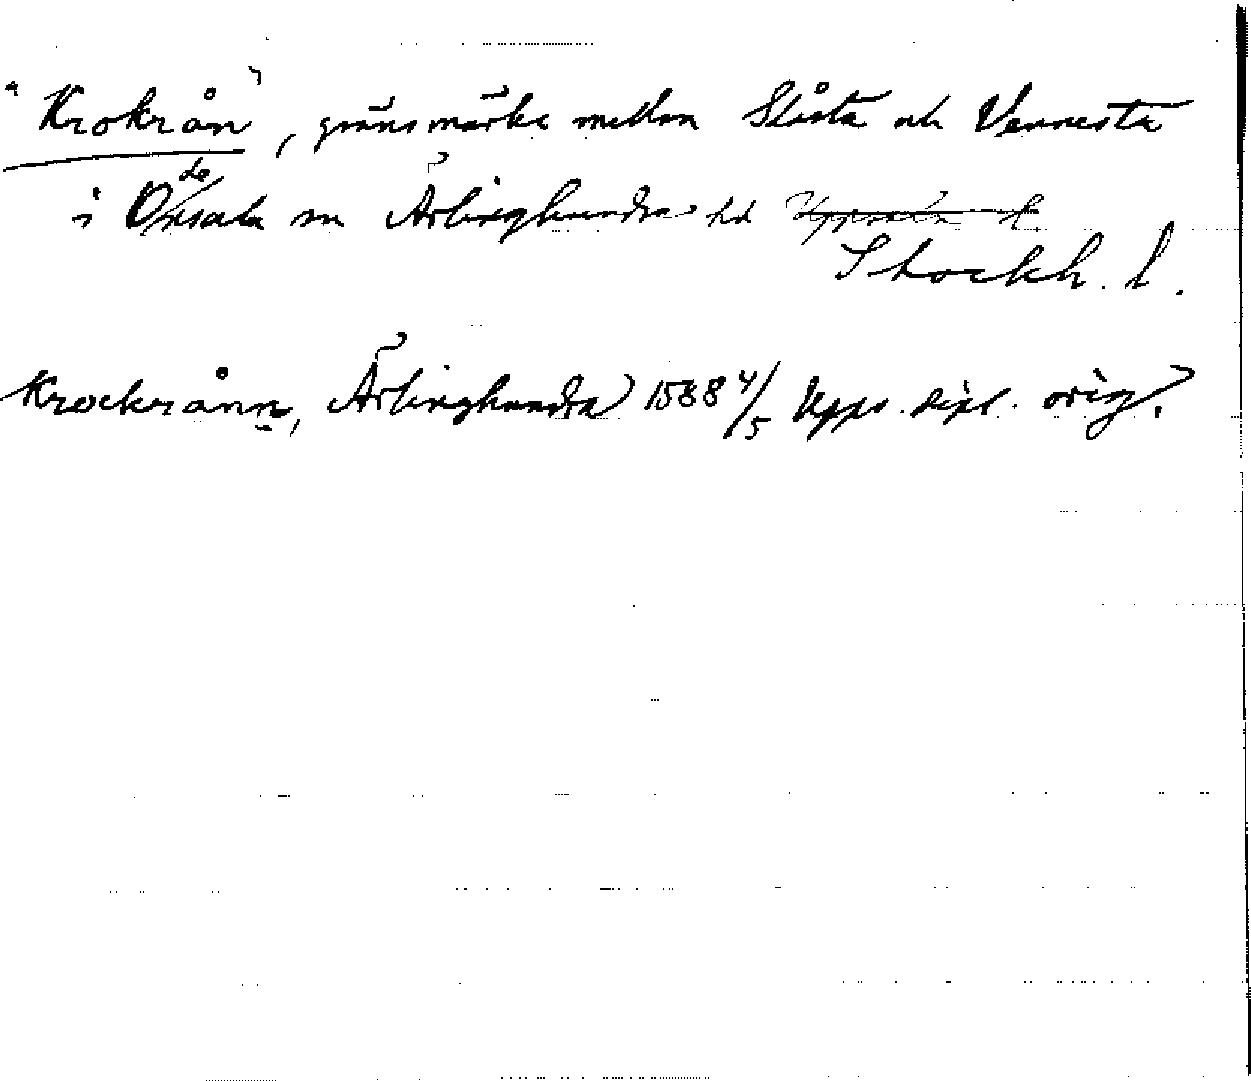 "Krokrån", gränsmärke mellan Slåsta och Vennesta
i Odensala sn Ärlinghundra hd Uppsala l.
Stockh. l.
Krockrånn, Ärlinghundra 1588 4/5 Upps. dipl. orig.